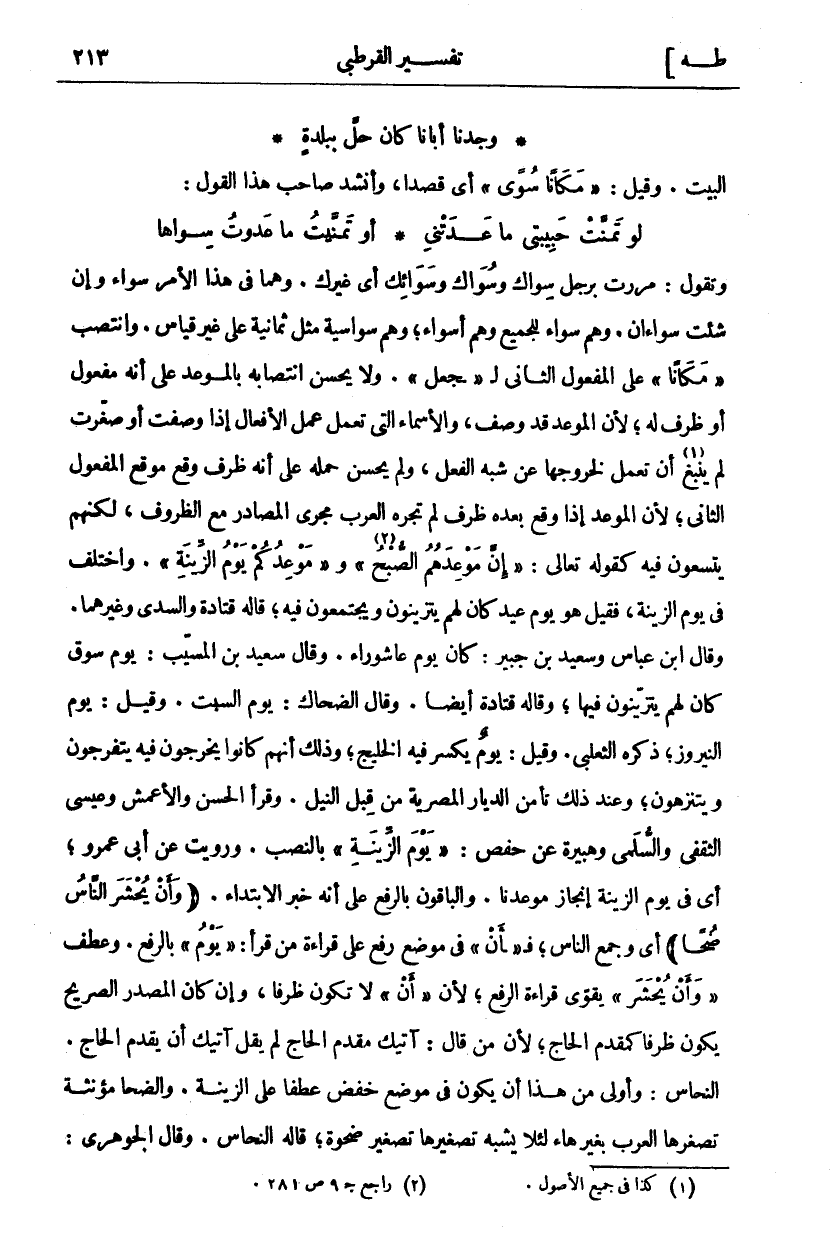 طــه ] تفســير القرطبي ٢١٣
* وجدنا أبانا كان حلَّ ببلدةٍ *
البيت . وقيل : « مَكَانًا سُوًى » أى قصدا، وأنشد صاحب هذا القول :
لو تَمنَّتْ حَبِيبتى ما عَــدَتْنِي * أو تَمنَّيتُ ما عَدوتُ سِــواها
وتقول : مررت برجل سِواك وسُوَاك وسَوَائِك أى غيرك . وهما فى هذا الأمر سواء وإن
شئت سواءان . وهم سواء للجميع وهم أسواء؛ وهم سواسية مثل ثمانية على غير قياس . وانتصب
« مَكَانًا » على المفعول الثانى لـ « ـجعل » . ولا يحسن انتصابه بالمــوعد على أنه مفعول
أو ظرف له ؛ لأن الموعد قد وصف، والأسماء التى تعمل عمل الأفعال إذا وصفت أو صغّرت
لم ينبغ (١) أن تعمل لخروجها عن شبه الفعل ، ولم يحسن حمله على أنه ظرف وقع موقع المفعول
الثانى؛ لأن الموعد إذا وقع بعده ظرف لم تجره العرب مجرى المصادر مع الظروف ، لكنهم
يتسعون فيه كقوله تعالى : « إِنَّ مَوْعِدَهُمُ الصُّبْحُ (٢) » و « مَوْعِدُكُمْ يَوْمُ الزِّينَةِ » . وأختلف
فى يوم الزينة ، فقيل هو يوم عيد كان لهم يتزينون ويجتمعون فيه؛ قاله قتادة والسدى وغيرهما .
وقال ابن عباس وسعيد بن جبير : كان يوم عاشوراء . وقال سعيد بن المسيّب : يوم سوق
كان لهم يتزيّنون فيها ؛ وقاله قتادة أيضــا . وقال الضحاك : يوم السبت . وقيــل : يوم
النيروز؛ ذكره الثعلبى . وقيل : يومٌ يكسر فيه الخليج؛ وذلك أنهم كانوا يخرجون فيه يتفرجون
ويتنزهون؛ وعند ذلك تأمن الديار المصرية من قِبل النيل . وقرأ الحسن والأعمش وعيسى
الثقفى والسُّلَمى وهبيرة عن حفص : « يَوْمَ الزِّينَــةِ » بالنصب . ورويت عن أبى عمرو ؛
أى فى يوم الزينة إنجاز موعدنا . والباقون بالرفع على أنه خبر الابتداء . ﴿ وَأَنْ يُحْشَرَ النَّاسُ
ضُحًــا ﴾ أى وجمع الناس؛ فـ« ـأَنْ » فى موضع رفع على قراءة من قرأ : « يَوْمُ » بالرفع . وعطف
« وَأَنْ يُحْشَرَ » يقوّى قراءة الرفع ؛ لأن « أَنْ » لا تكون ظرفا ، وإن كان المصدر الصريح
يكون ظرفا كمقدم الحاج؛ لأن من قال : آتيك مقدم الحاج لم يقل آتيك أن يقدم الحاج .
النحاس : وأولى من هــذا أن يكون فى موضع خفض عطفا على الزينــة . والضحا مؤنثــة
تصغرها العرب بغير هاء لئلا يشبه تصغيرها تصغير ضحوة؛ قاله النحاس . وقال الجوهرى :
(١) كذا فى جميع الأصول . (٢) راجع جـ ٩ ص ٢٨١ .